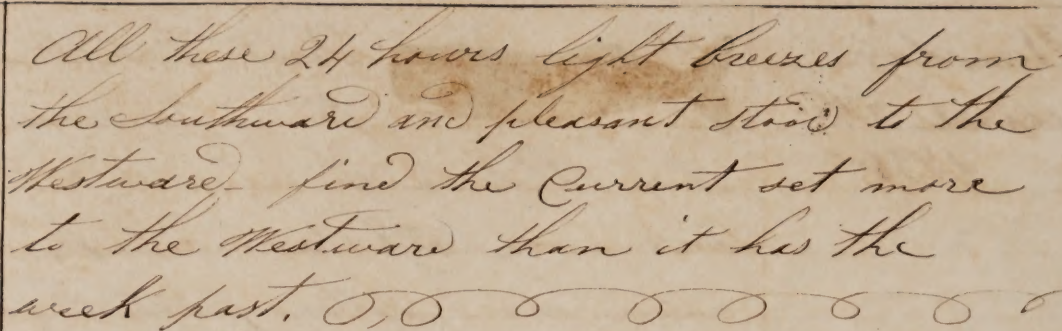 All these 24 hours light breezes from
the Southward and pleasant stood to the
Westward - find the Current set more
to the Westward than it has the
week past.